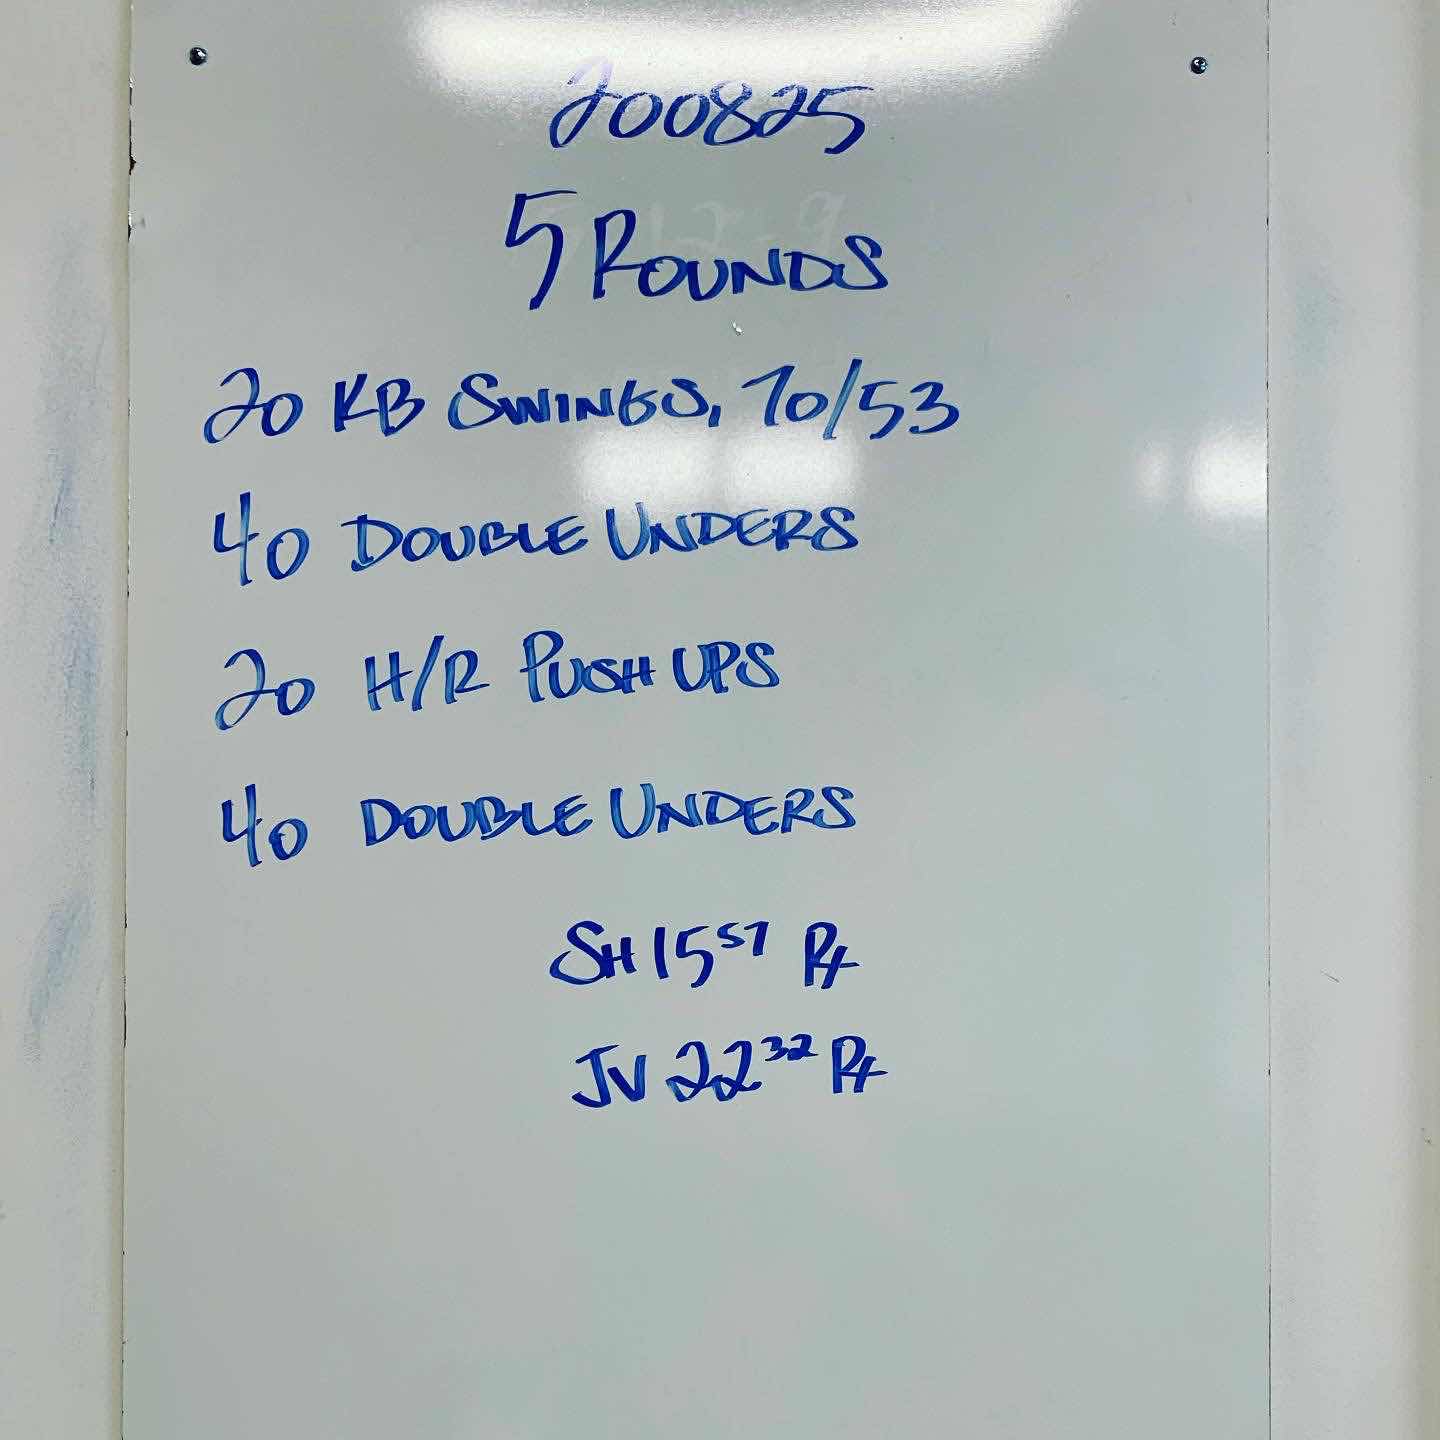 200825
5 ROUNDS
20 KB SWINGS, 70/53
40 DOUBLE UNDERS
20 H/R PUSH UPS
40 DOUBLE UNDERS
SH 15 57 Rx
JV 22 32 Rx